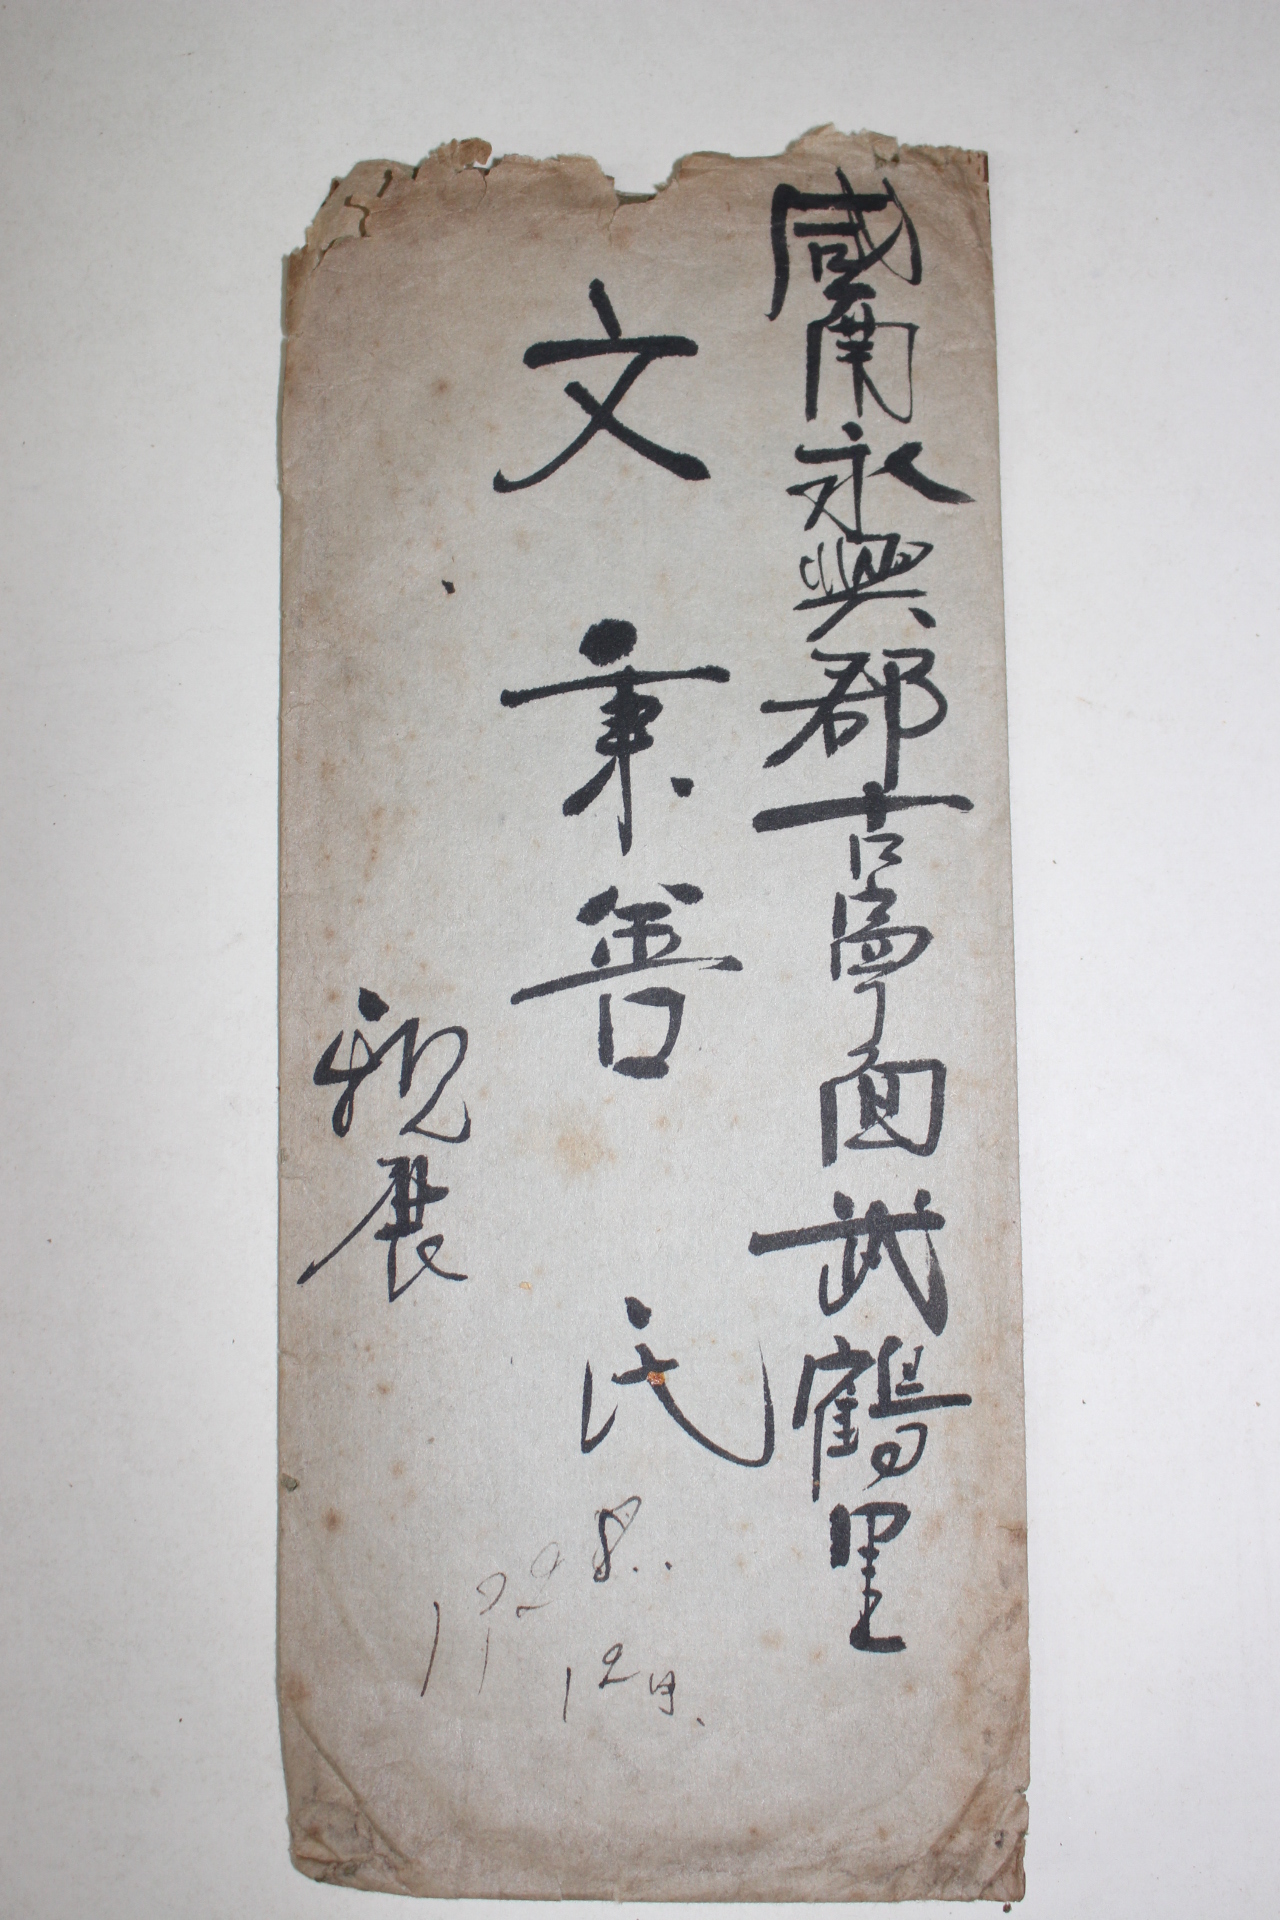 咸南永興郡古寧面武鶴里
文秉善 氏
親展
1928.
12月.